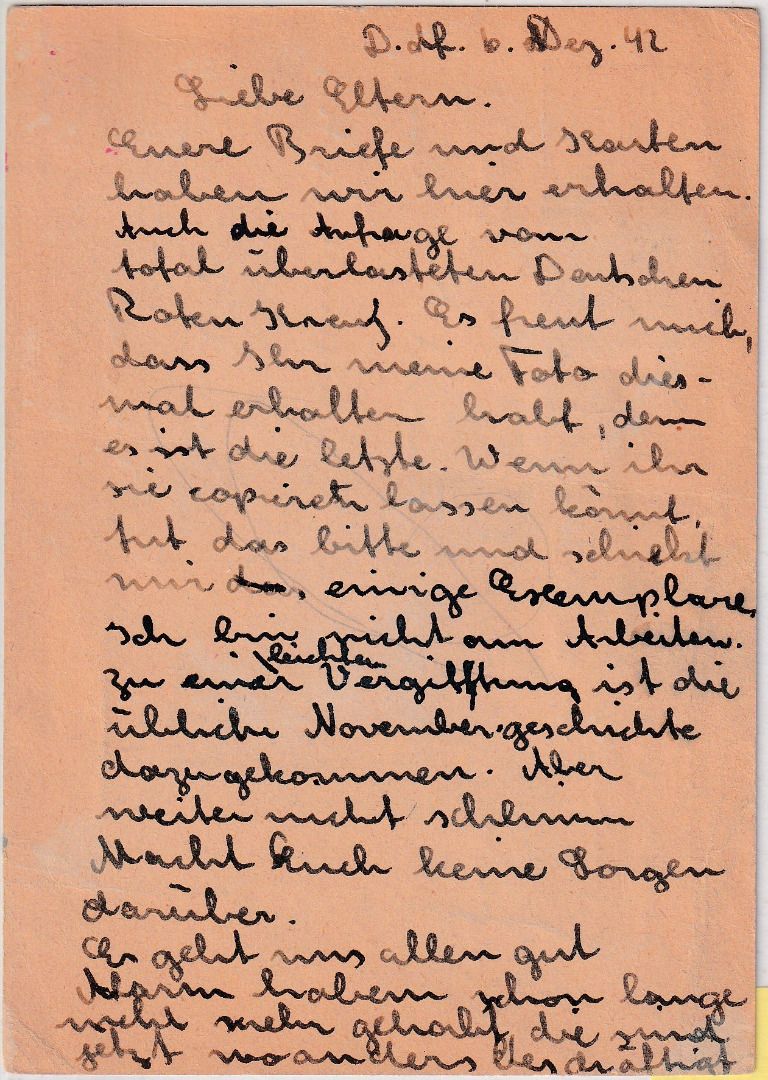 D.df. 6. Dez. 42
Liebe Eltern.
Euere Briefe und Karten
haben wir hier erhalten.
Auch die Anfrage vom
total überlasteten Deutschen
Roten Kreuz. Es freut mich,
dass Ihr meine Foto dies-
mal erhalten habt, denn
es ist die letzte. Wenn ihr
sie copieren lassen könnt,
tut das bitte und schickt
mir einige Exemplare.
Ich bin nicht am Arbeiten.
zu einer leichten Vergiftung ist die
übliche November-geschichte
dazugekommen. Aber
weiter nicht schlimm
Macht Euch keine Sorgen
darüber.
Es geht uns allen gut
Alarm haben schon lange
nicht mehr gehabt, die sind
jetzt woanders beschäftigt